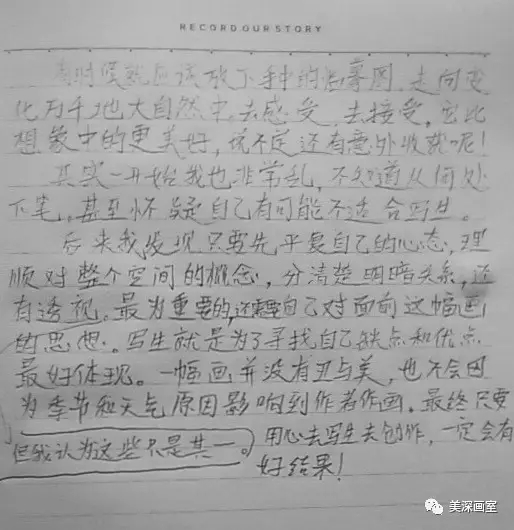 RECORD OUR STORY
有时候就应该放下手中的临摹图,走向变
化万千的大自然中,去感受,去接受,它比
想象中的更美好,说不定还有意外收获呢!
其实一开始我也非常乱,不知道从何处
下笔,甚至怀疑自己有可能不适合写生。
后来我发现只要先平复自己的心态,理
顺对整个空间的概念,分清楚明暗关系,还
有透视。最为重要的,还需要自己对面前这幅画
的思想。写生就是为了寻找自己缺点和优点
最好体现。一幅画并没有丑与美,也不会因
为季节和天气原因影响到作者作画。最终只要
但我认为这些只是其一。用心去写生去创作,一定会有
好结果!
美深画室